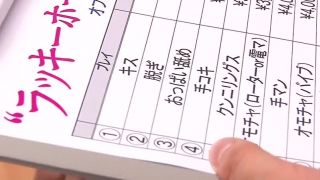 “ラッキーホ
オプ
プレイ
① キス
② 脱ぎ
③ おっぱい舐め
④ 手コキ
クンニリングス
モチャ(ローターor電マ)
手マン
オモチャ(バイブ)
¥3
¥4,0
¥4,00